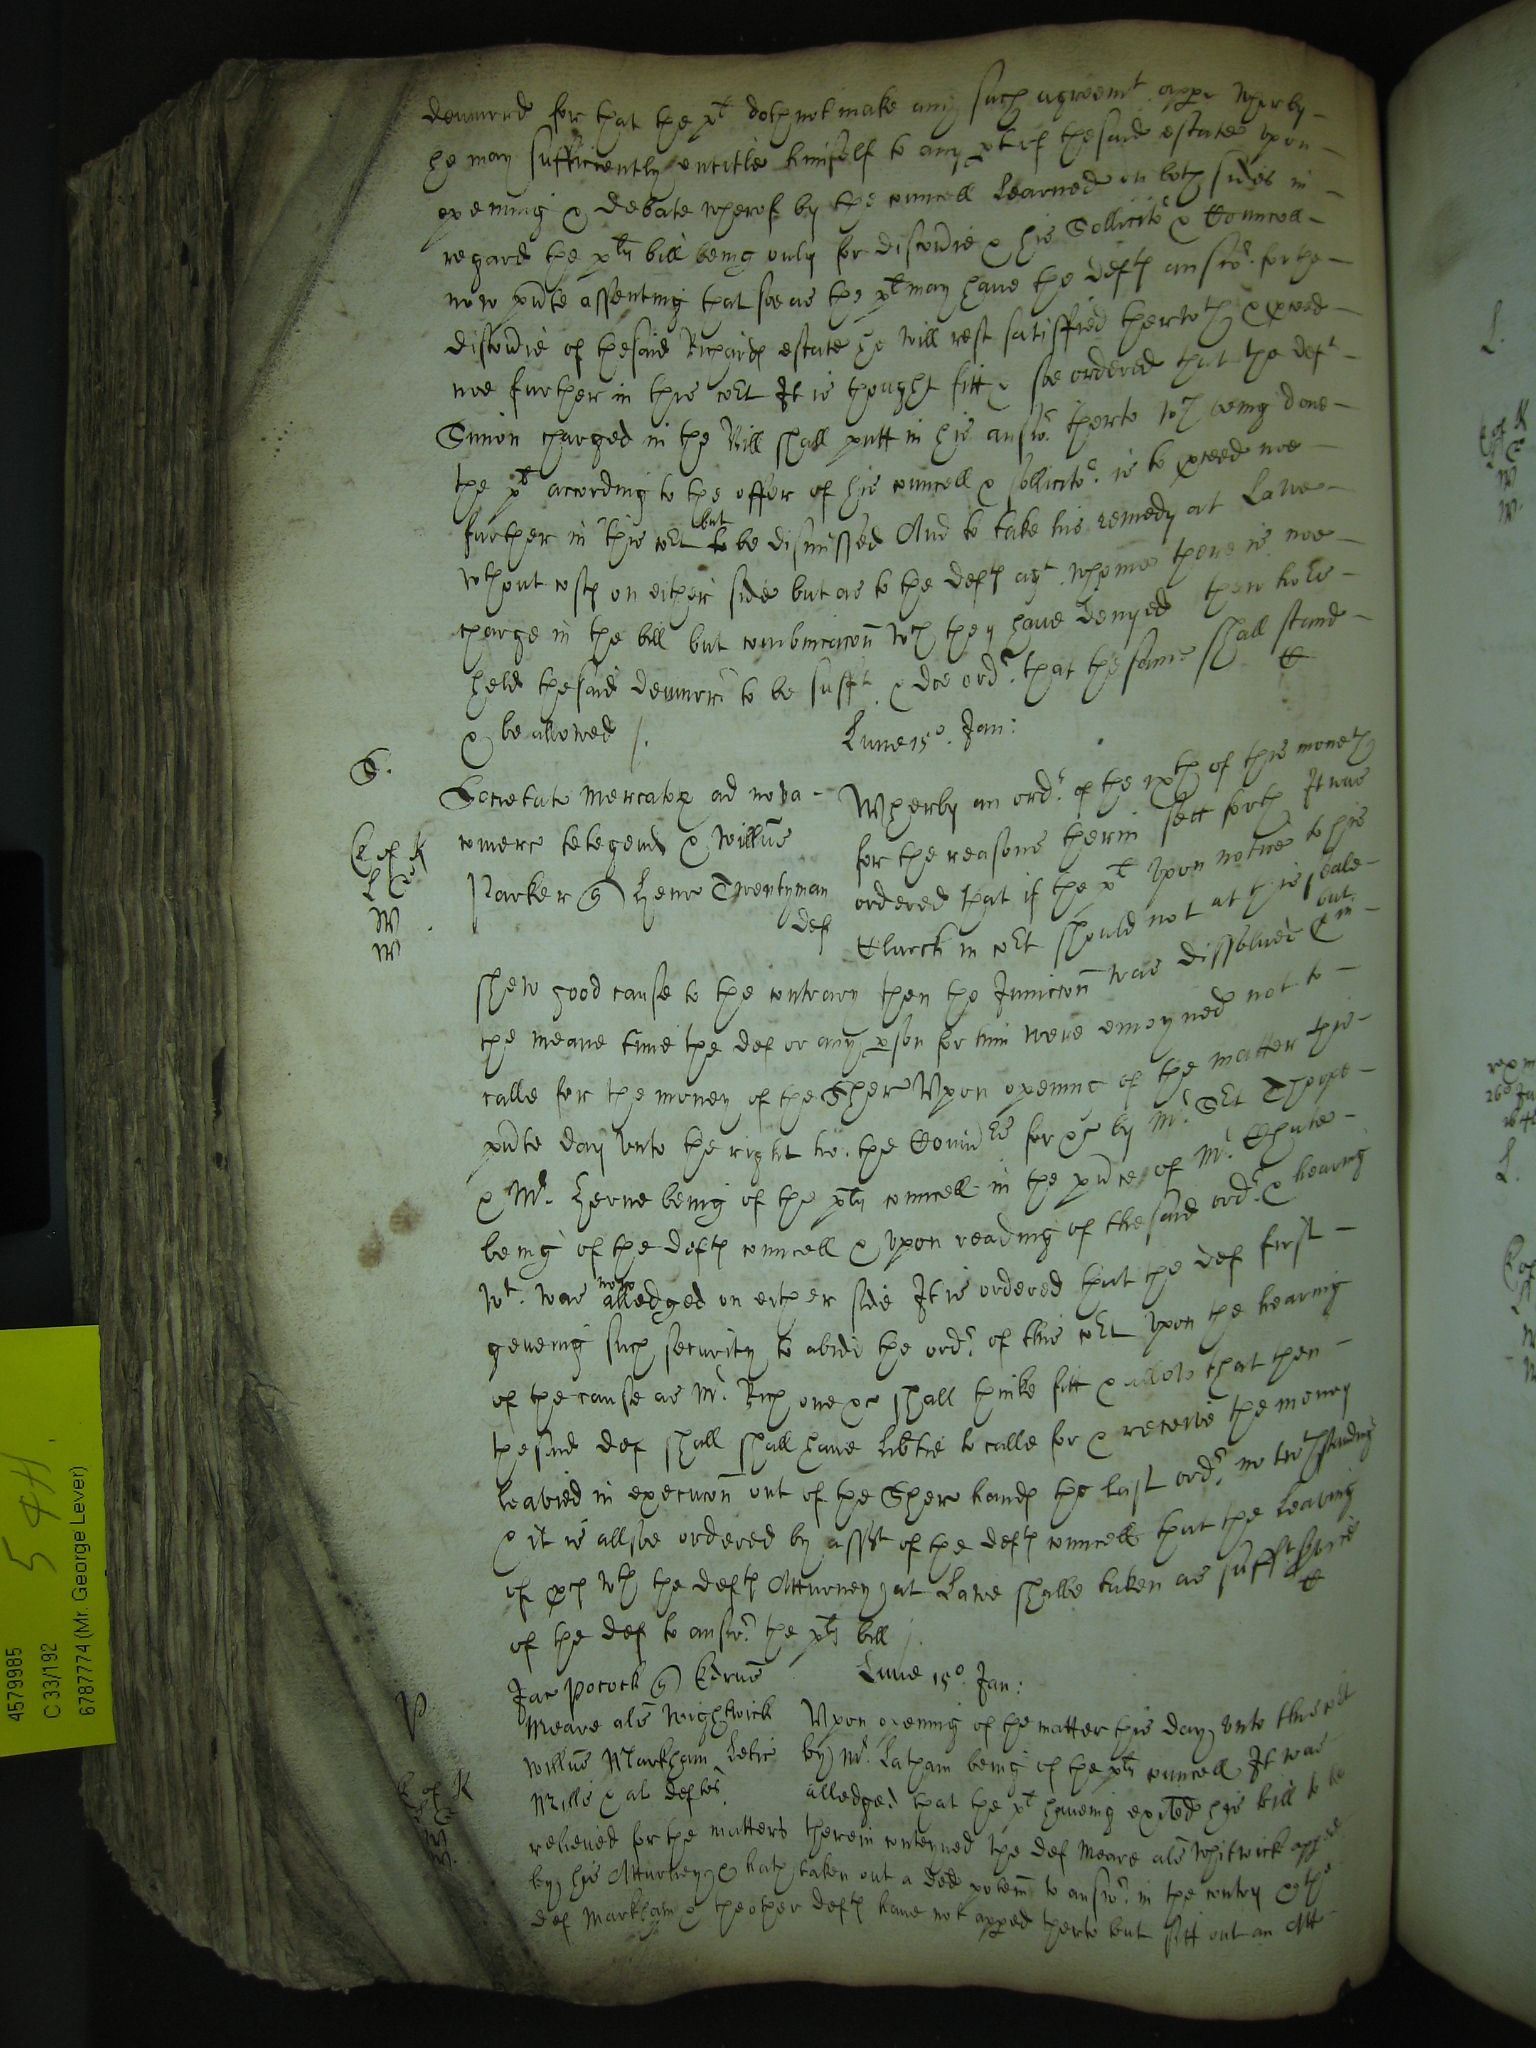 demurred for that the plt doth not make any such agreemt appe wherby
he may sufficiently entitle himself to any pte of thesaid estate Vpon
opening & debate wherof by the councell Learned on both sides in
regard the plts bill being only for discoūie & his Sollicitor & Councell
now pnte assenting that soe as the plt may haue the defts answr. for the
discoūie of thesaid Richards estate he will rest satisfied therwth & pceed
noe further in this cort It is thought fitt & soe ordered that the deft
Simon charged in the Bill shall putt in his answr. therto wch being done
the plt according to the offer of his councell & sollicitor. is to pceed noe
further in this cort but to be dismissed And to take his remedy at Lawe
wthout costs on either side but as to the defts agt. whome there is noe
charge in the bill but combinacon wch they haue denyed their Lopps
held thesaid demurrr to be sufft. & doe ordr. that thesame shall stand
& be allowed /.
Lune 15o. Jan:
S.
Societate mercator ad nova
comerc tetegend & Willūs
Parker q Henr Twentyman
def
Wherby an ordr. of the ixth of this moneth
for the reasons therin sett forth It was
ordered that if the plt Vpon notice to his
Clarck in cort should not at this seale
shew good cause to the contrary then the Iniuccon was dissolued but & in
the meane time the def or any pson for him were enioyned not to
calle for the money of the Sher Vpon opening of the matter this
pnte day vnto the right ho. the Comrs for &c by Mr. Sert Thorpe
& Mr. Herne being of the plts councell in the pnce of Mr. Chute
being of the defts councell & vpon reading of thesaid ordr. & hearing
wt. was now alledged on either side It is ordered that the def first
geueing such security to abide the ordr. of this cort Vpon the hearing
of the cause as Mr. Rich one &c shall thinke fitt & allow that then
thesaid def shall shall haue libtie to calle for & receiue the money
leavied in execucon out of the Sher hands the last ordr. notwthstanding
& it is allsoe ordered by asst of the defts councell that the leaving
of pces wth the defts Atturney at Lawe shalbe taken as sufft
of the def to answr. the plts bill /.
Lune 15o. Jan:
P
Jac Pocock q
Meare als Wightwick
Willūs Markham Letic
Mills & al deftes
Vpon opening of the matter this day vnto this cort
by Mr. Latham being of the plts councell It was
alledged that the plt haueing exited his bill to be
relieued for the matters therein conteyned the def Meare als Whitwick apped
by his Atturney & hath taken out a ded potem to answr. in the contry & the
def Markham & the other defts haue not apped therto but sitt out an Att
4579985
C 33/192
6787774 (Mr. George Lever)